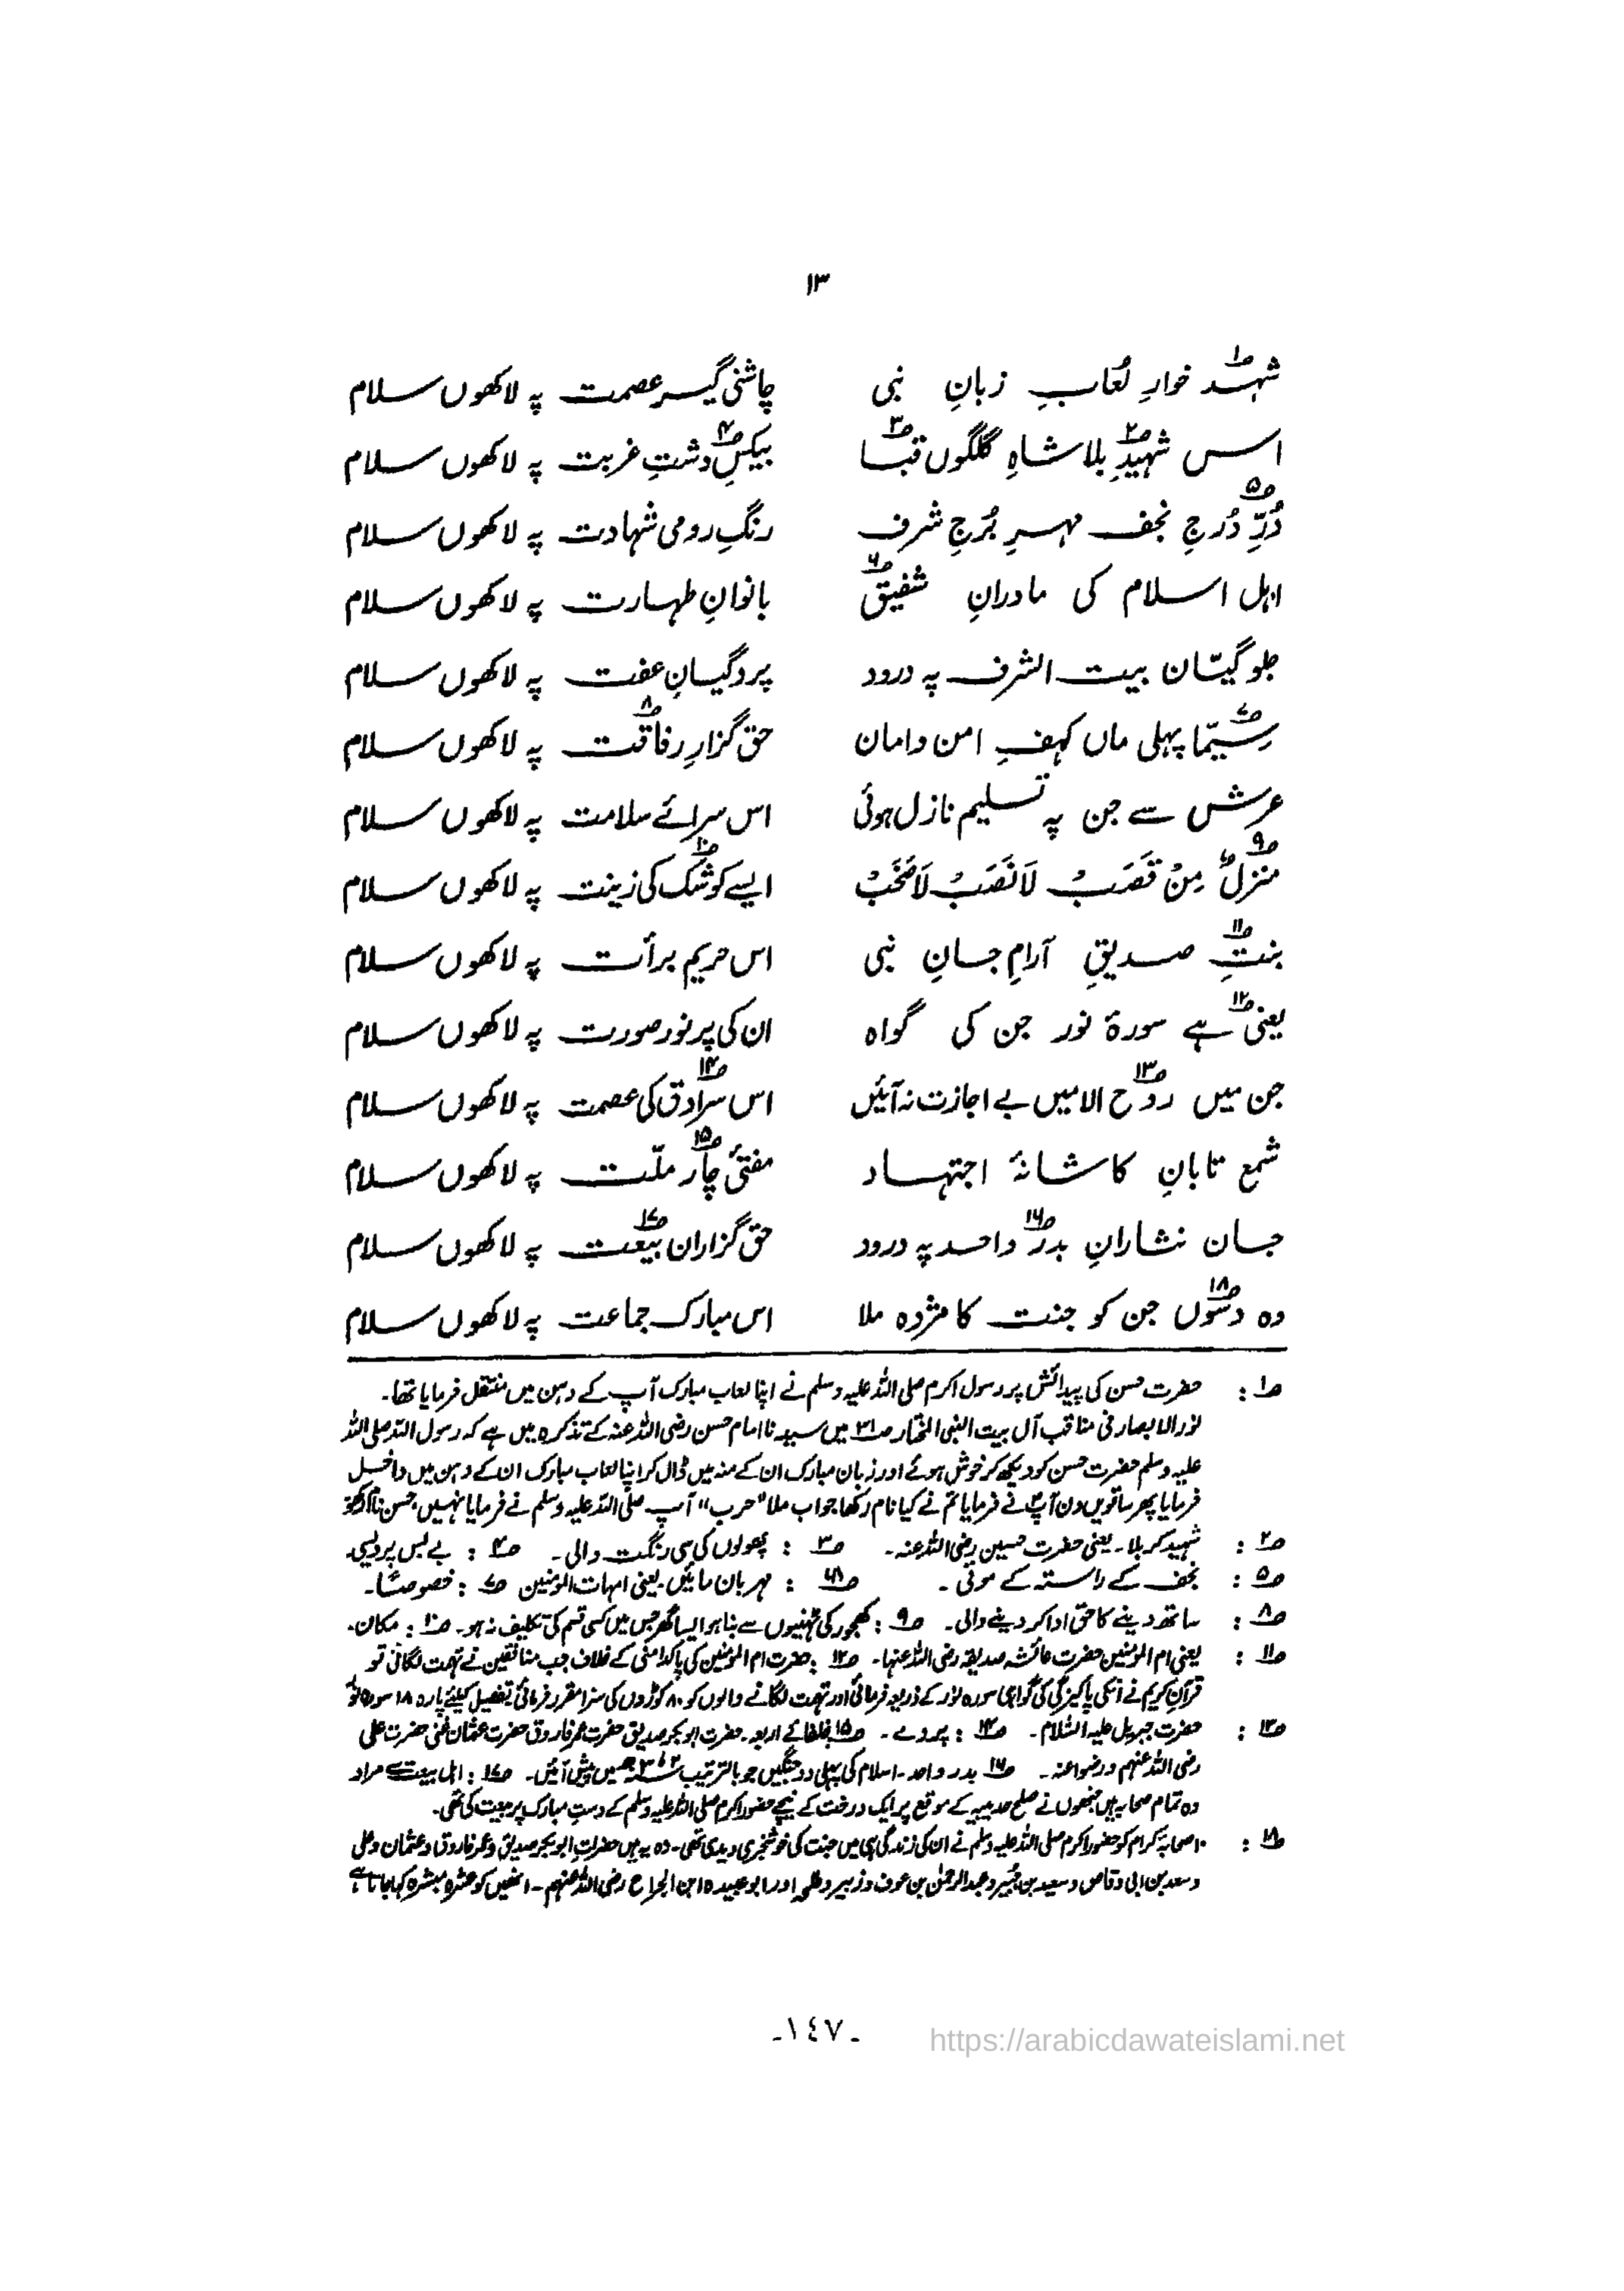 ۱۳
شہد خوارِ لُعابِ زبانِ نبی چاشنی گیر عصمت پہ لاکھوں سلام
اس شہیدِ بلا شاہِ گلگوں قبا بیکسِ دشتِ غربت پہ لاکھوں سلام
دُرِّ دُرجِ نجف مہرِ بُرجِ شرف رنگِ رومی شہادت پہ لاکھوں سلام
اہل اسلام کی مادرانِ شفیق بانوانِ طہارت پہ لاکھوں سلام
جلو گیّان بیت الشرف پہ درود پردگیانِ عفت پہ لاکھوں سلام
سِیَّما پہلی ماں کہفِ امن وامان حق گزارِ رفاقت پہ لاکھوں سلام
عرش سے جن پہ تسلیم نازل ہوئی اس سرائے سلامت پہ لاکھوں سلام
منزلٌ مِنْ قَصَبْ لَا نَصَبْ لَا صَخَبْ ایسے کوشک کی زینت پہ لاکھوں سلام
بنتِ صدیقِ آرامِ جانِ نبی اس حریم برأت پہ لاکھوں سلام
یعنی ہے سورۂ نور جن کی گواہ ان کی پرنور صورت پہ لاکھوں سلام
جن میں روح الامیں بے اجازت نہ آئیں اس سرادق کی عصمت پہ لاکھوں سلام
شمع تابانِ کاشانۂ اجتہاد مفتیٔ چار ملّت پہ لاکھوں سلام
جان نثارانِ بدر واحد پہ درود حق گزاران بیعت پہ لاکھوں سلام
وہ دسوں جن کو جنت کا مژدہ ملا اس مبارک جماعت پہ لاکھوں سلام
ص۱ : حضرت حسن کی پیدائش پر رسول اکرم صلی اللہ علیہ وسلم نے اپنا لعاب مبارک آپ کے دہن میں منتقل فرمایا تھا۔
نور الابصار فی مناقب آل بیت النبی المختار ص۳۱ میں سیدنا امام حسن رضی اللہ عنہ کے تذکرہ میں ہے کہ رسول اللہ صلی اللہ
علیہ وسلم حضرت حسن کو دیکھ کر خوش ہوئے اور زبان مبارک ان کے منہ میں ڈال کر اپنا لعاب مبارک ان کے دہن میں داخل
فرمایا پھر ساتویں دن آپ نے فرمایا تم نے کیا نام رکھا جواب ملا "حرب" آپ صلی اللہ علیہ وسلم نے فرمایا نہیں، حسن نام رکھو
ص۲ : شہید کربلا۔ یعنی حضرت حسین رضی اللہ عنہ۔ ص۳ : پھولوں کی سی رنگت والی۔ ص۴ : بے بس پردیسی
ص۵ : نجف کے راستہ کے موتی۔ ص۶ : مہربان مائیں یعنی امہات المؤمنین ص۷ : خصوصًا۔
ص۸ : ساتھ دینے کا حق ادا کر دینے والی۔ ص۹ : کھجور کی ٹہنیوں سے بنا ہوا ایسا گھر جس میں کسی قسم کی تکلیف نہ ہو۔ ص۱۰ : مکان۔
ص۱۱ : یعنی ام المؤمنین حضرت عائشہ صدیقہ رضی اللہ عنہا۔ ص۱۲ : حضرت ام المؤمنین کی پاکدامنی کے خلاف جب منافقین نے تہمت لگائی تو
قرآن کریم نے انکی پاکیزگی کی گواہی سورہ نور کے ذریعہ فرمائی اور تہمت لگانے والوں کو ۸۰ کوڑوں کی سزا مقرر فرمائی تفصیل کیلئے پارہ ۱۸ سورہ نور
ص۱۳ : حضرت جبریل علیہ السلام۔ ص۱۴ : پردے۔ ص۱۵ خلفائے اربعہ۔ حضرت ابوبکر صدیق حضرت عمر فاروق حضرت عثمان غنی حضرت علی
رضی اللہ عنہم ورضوا عنہ۔ ص۱۶ بدر واحد۔ اسلام کی پہلی دو جنگیں جو بالترتیب ۲، ۳ھ میں پیش آئیں۔ ص۱۷ : اہل بیعت سے مراد
وہ تمام صحابہ ہیں جنھوں نے صلح حدیبیہ کے موقع پر ایک درخت کے نیچے حضور اکرم صلی اللہ علیہ وسلم کے دست مبارک پر بیعت کی تھی۔
ص۱۸ : ۱۰ صحابہ کرام کو حضور اکرم صلی اللہ علیہ وسلم نے ان کی زندگی ہی میں جنت کی خوشخبری دیدی تھی۔ وہ یہ ہیں حضرات ابوبکر صدیق وعمر فاروق وعثمان وعلی
وسعد بن ابی وقاص وسعید بن جُبیر وعبدالرحمٰن بن عوف وزبیر وطلحہ اور ابو عبیدہ ابن الجراح رضی اللہ عنہم۔ انھیں کو عشرہ مبشرہ کہا جاتا ہے
-١٤٧-
https://arabicdawateislami.net